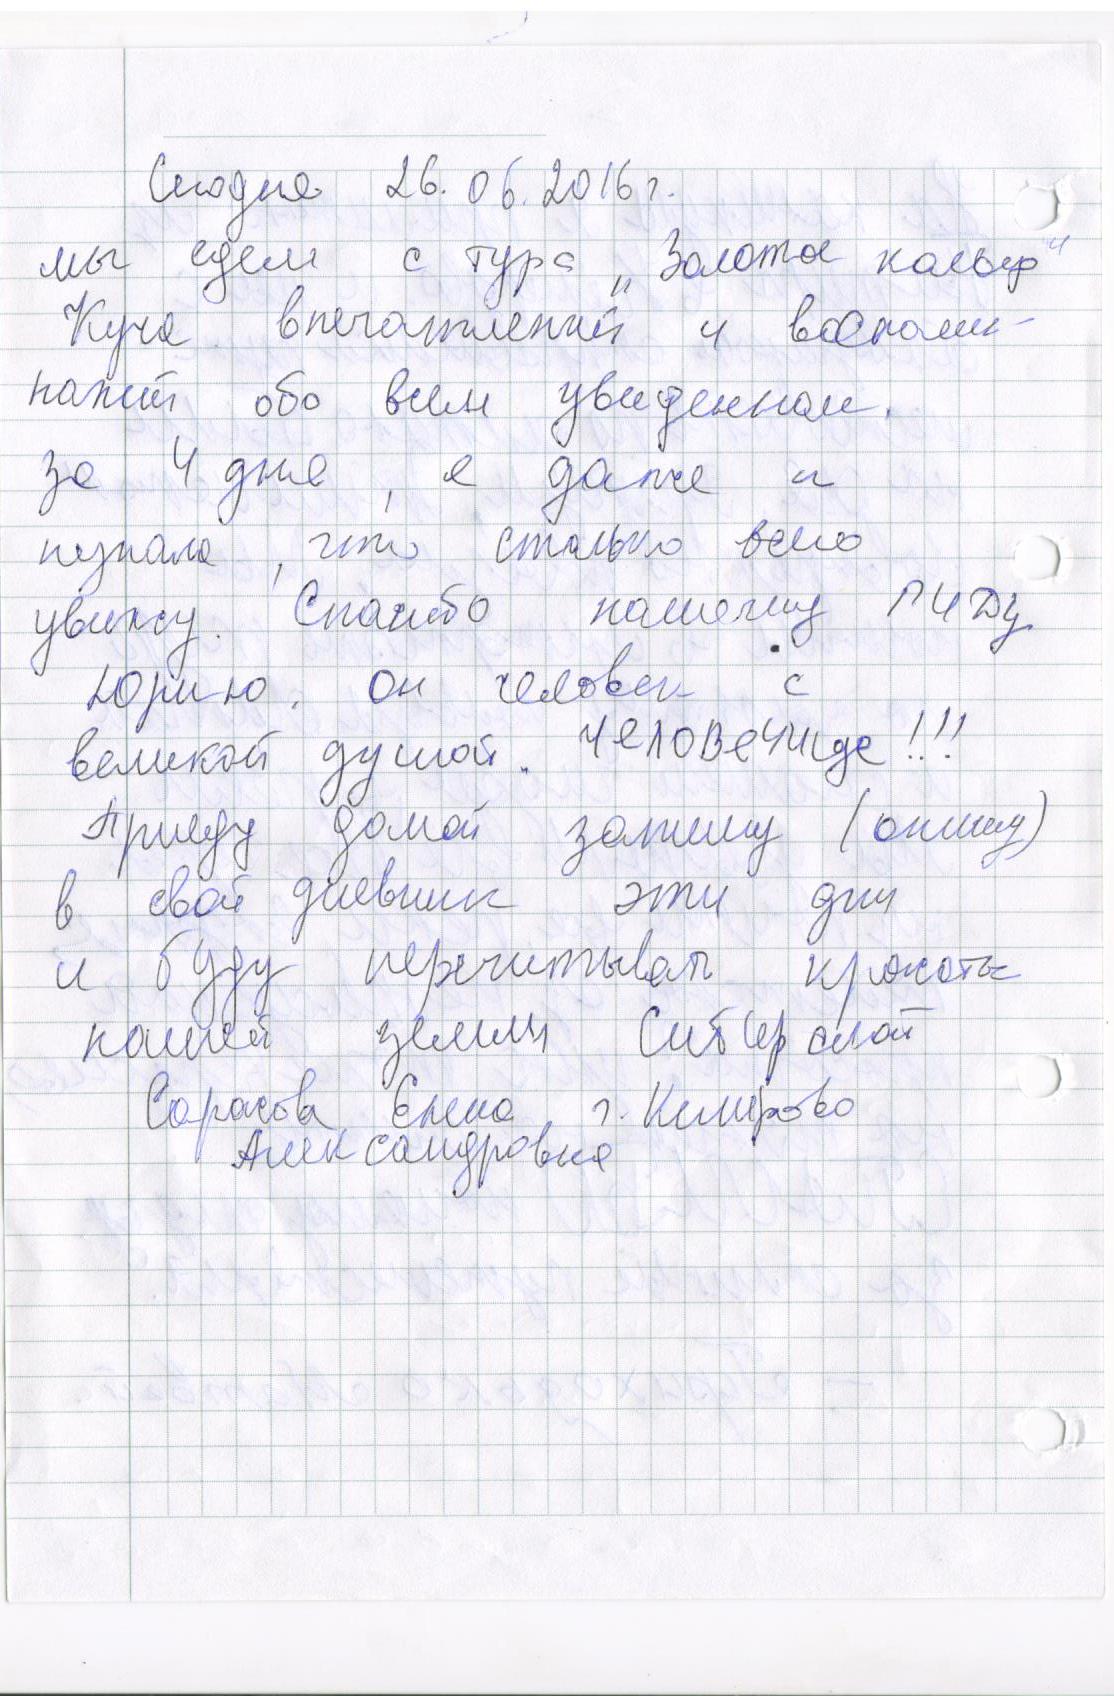 Сегодня 26.06.2016 г.
мы едем с тура „Золотое кольцо"
Куча впечатлений и воспоми-
наний обо всем увиденном.
За 4 дня, я даже и
незнала, что столько всего
увижу. Спасибо нашему ГИДу
Юрию. Он человек с
великой душой. ЧЕЛОВеЧИЩе!!!
Приеду домой запишу (опишу)
в свой дневник эти дни
и буду перечитывать красоты
нашей земли Сибирской
Елена г. Кемерово
Александровна